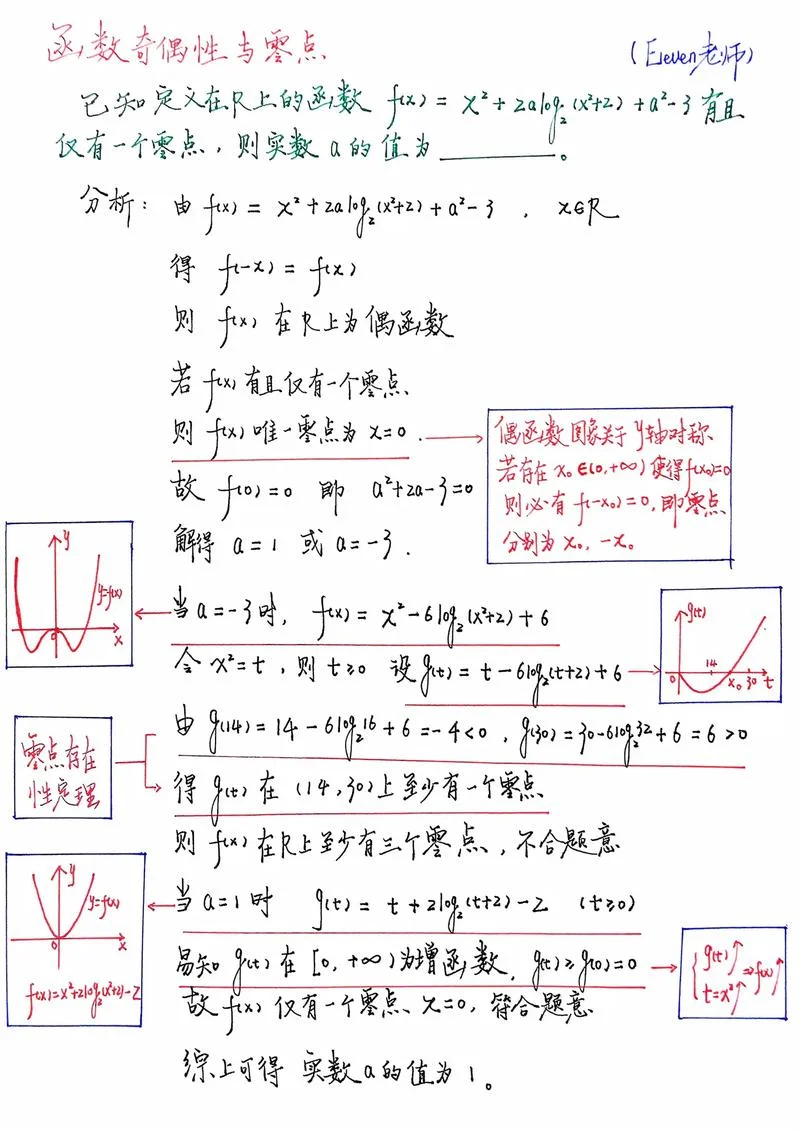 函数奇偶性与零点
(Eleven老师)
已知定义在R上的函数 f(x) = x²+2alog₂(x²+2)+a²-3 有且
仅有一个零点，则实数 a 的值为________。
分析：由 f(x) = x²+2alog₂(x²+2)+a²-3 ，x∈R
得 f(-x) = f(x)
则 f(x) 在 R 上为偶函数
若 f(x) 有且仅有一个零点
则 f(x) 唯一零点为 x=0 .
偶函数图象关于 y轴对称
若存在 x₀∈(0,+∞) 使得f(x₀)=0
则必有 f(-x₀)=0, 即零点
分别为 x₀, -x₀
故 f(0)=0 即 a²+2a-3=0
解得 a=1 或 a=-3 .
y
y=f(x)
0
x
当 a=-3 时, f(x) = x²-6log₂(x²+2)+6
令 x²=t , 则 t≥0 设 g(t) = t-6log₂(t+2)+6
g(t)
0 14 x₀ 30 t
由 g(14)=14-6log₂16+6=-4<0 , g(30)=30-6log₂32+6=6>0
零点存在
性定理
得 g(t) 在 (14,30)上至少有一个零点
则 f(x) 在R上至少有三个零点, 不合题意
y
y=f(x)
0
x
f(x)=x²+2log₂(x²+2)-2
当 a=1 时 g(t) = t+2log₂(t+2)-2 (t≥0)
易知 g(t) 在 [0,+∞)为增函数, g(t)≥g(0)=0
{g(t)↗
t=x²↗ ⇒f(x)↗
故 f(x) 仅有一个零点 x=0, 符合题意
综上可得 实数 a 的值为 1 。